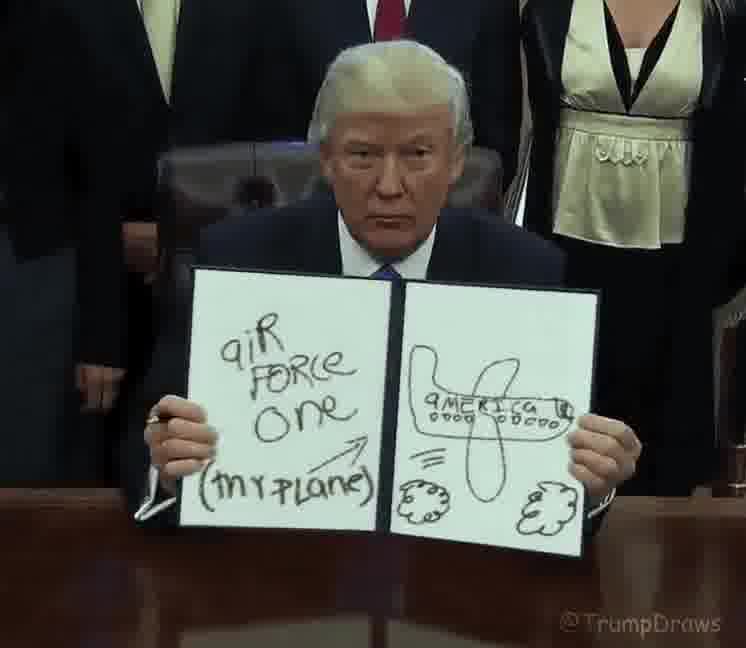 aiR
FORCe
one
(my PLane)
aMERICa
@TrumpDraws